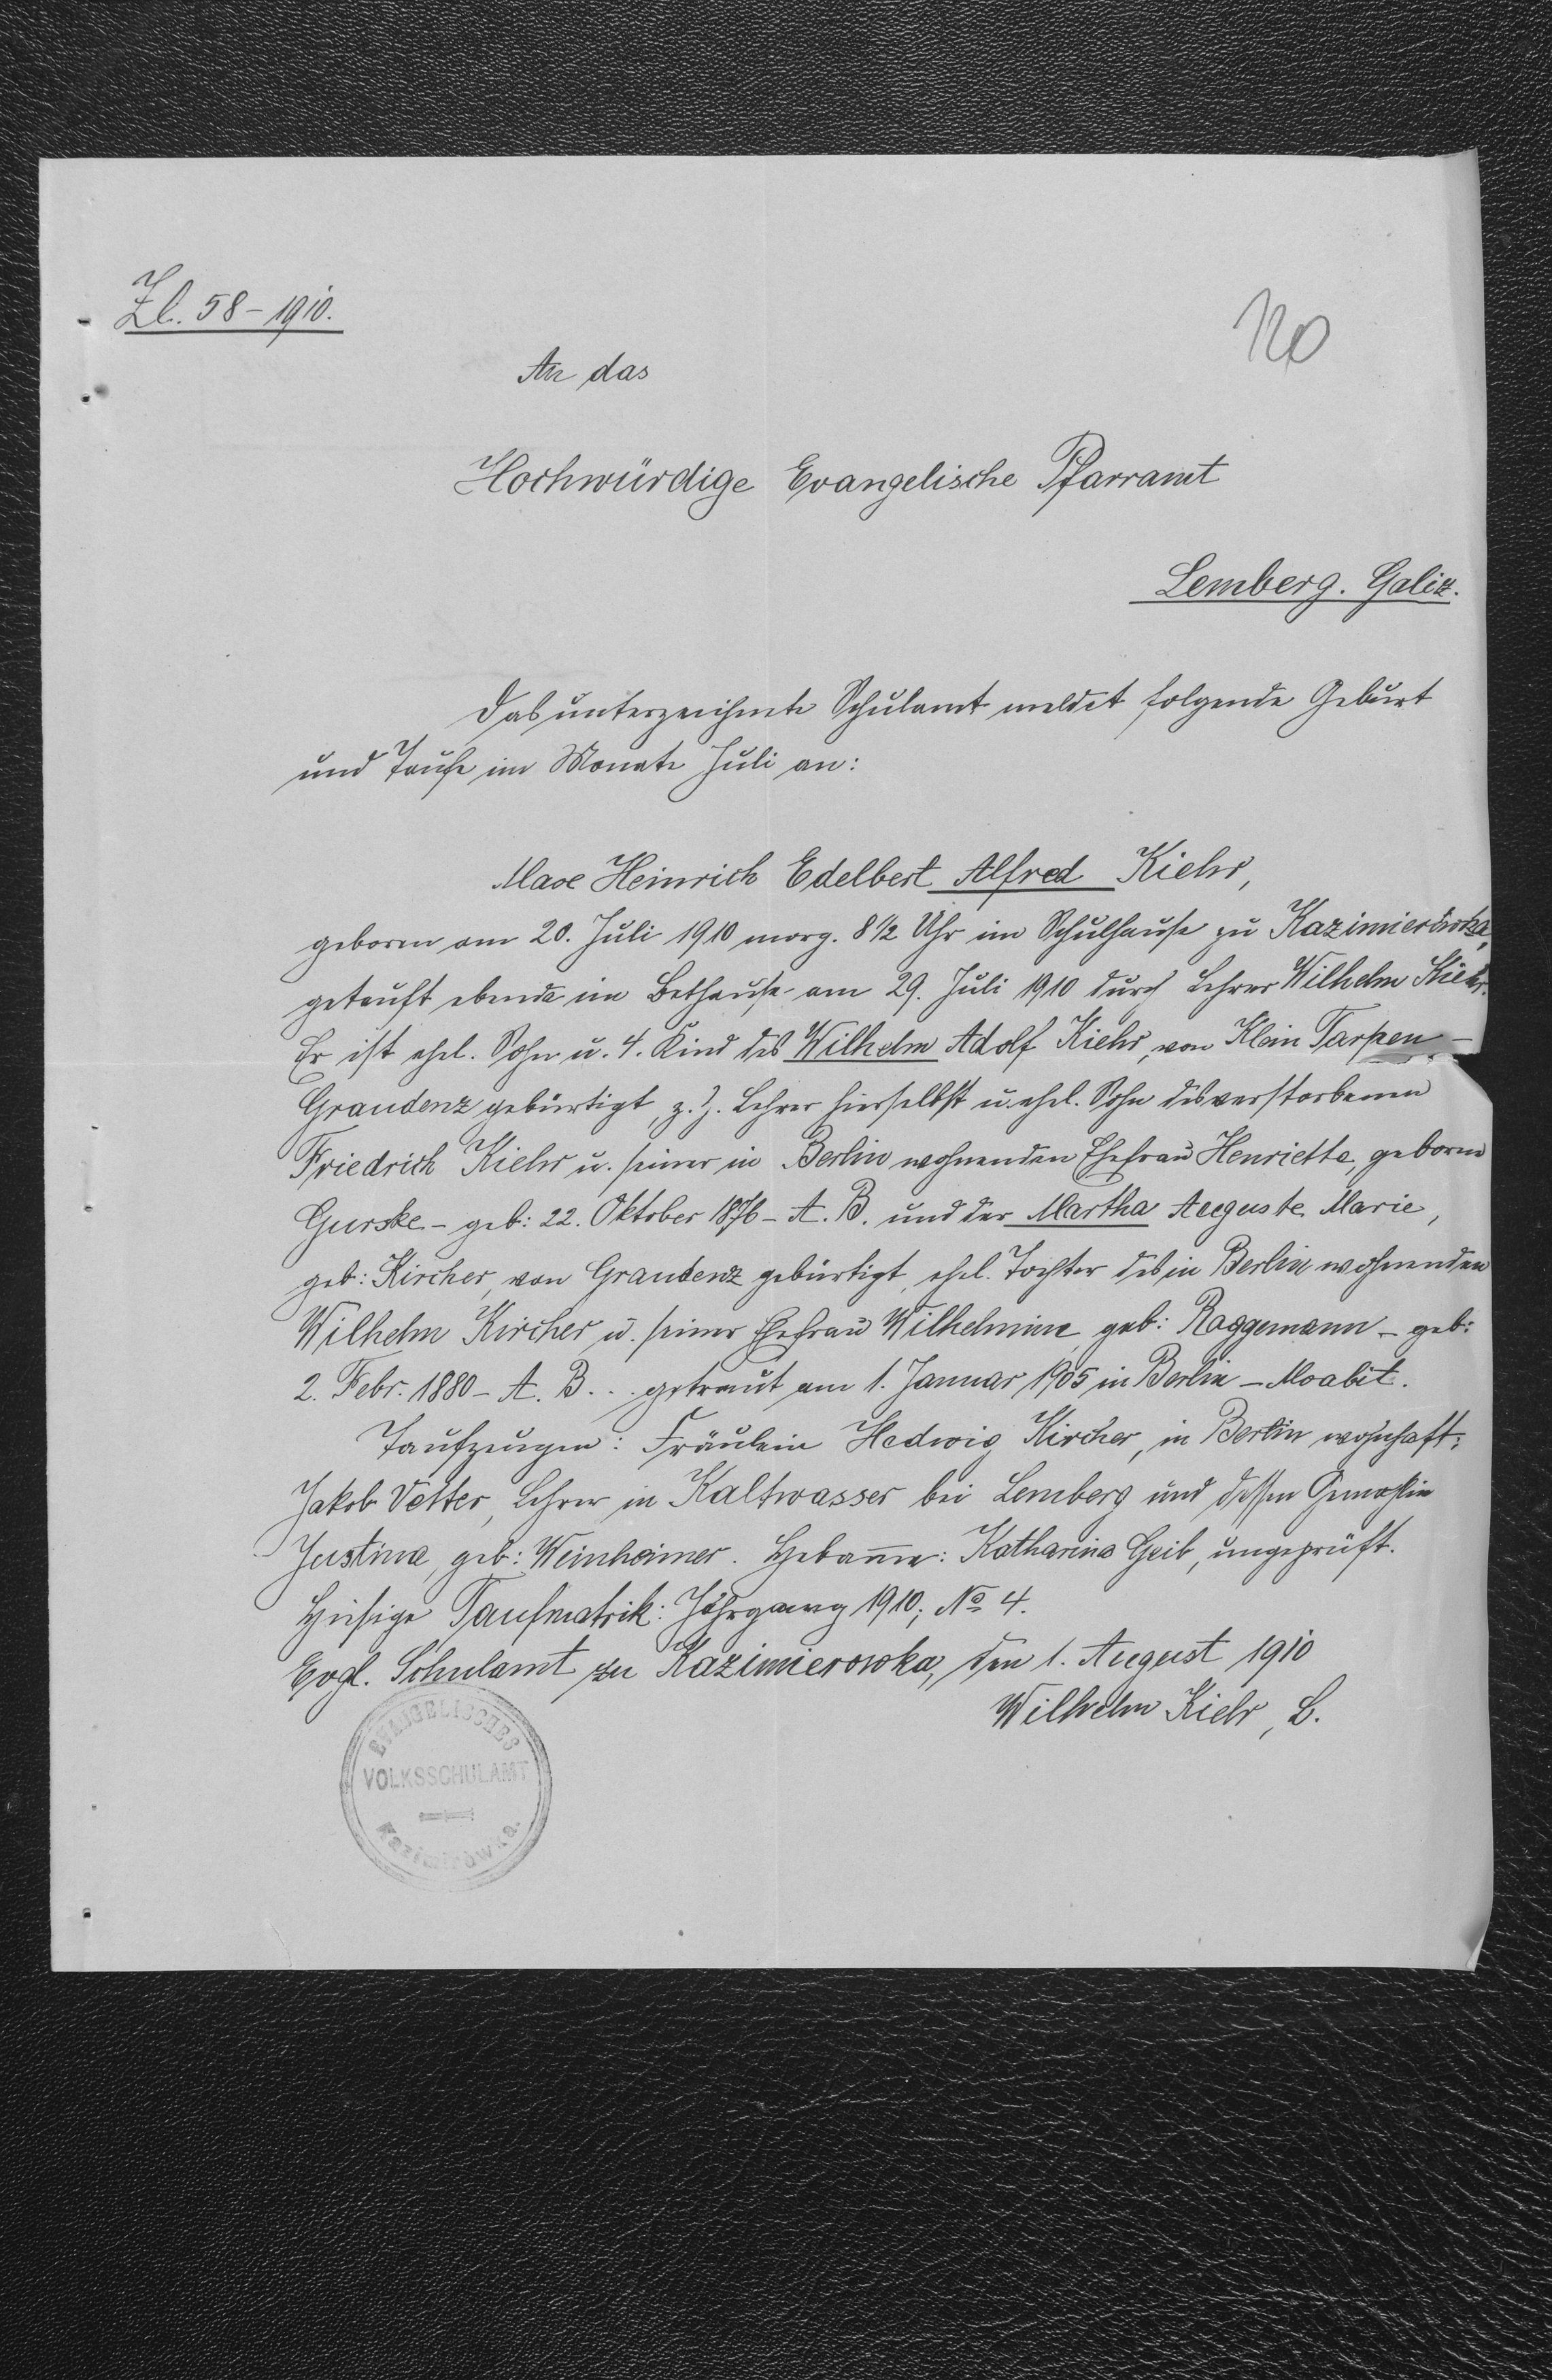 Zl. 58-1910.
120
An das
Hochwürdige Evangelische Pfarramt
Lemberg. Galiz.
Das unterzeichnete Schulamt meldet folgende Geburt
und Taufe im Monate Juli an:
Max Heinrich Edelbert Alfred Kiehr,
geboren am 20. Juli 1910 morg. 8 1/2 Uhr im Schulhause zu Kazimierówka,
getauft ebenda im Bethause am 29. Juli 1910 durch Lehrer Wilhelm Kiehr.
Er ist ehel. Sohn u. 4. Kind des Wilhelm Adolf Kiehr, von Klein Tarpen -
Graudenz gebürtigt, z. Z. Lehrer hierselbst u. ehel. Sohn des verstorbenen
Friedrich Kiehr u. seiner in Berlin wohnenden Ehefrau Henriette, geborne
Gurske - geb: 22. Oktober 1876 - A. B. und der Martha Auguste Marie,
geb: Kircher, von Graudenz gebürtigt, ehel. Tochter des in Berlin wohnenden
Wilhelm Kircher u. seiner Ehefrau Wilhelmine geb: Raggemann - geb:
2. Febr. 1880 - A. B. . . getraut am 1. Januar 1905 in Berlin - Moabit.
Taufzeugen: Fräulein Hedwig Kircher, in Berlin wohnhaft;
Jakob Vetter, Lehrer in Kaltwasser bei Lemberg und dessen Gemahlin
Justine geb: Weinheimer. Hebamme: Katharina Geib, ungeprüft.
Hiesige Taufmatrik: Jahrgang 1910; No 4.
Evgl. Schulamt zu Kazimierowka, den 1. August 1910
Wilhelm Kiehr, L.
EVANGELISCHES
VOLKSSCHULAMT
Kazimirówka.